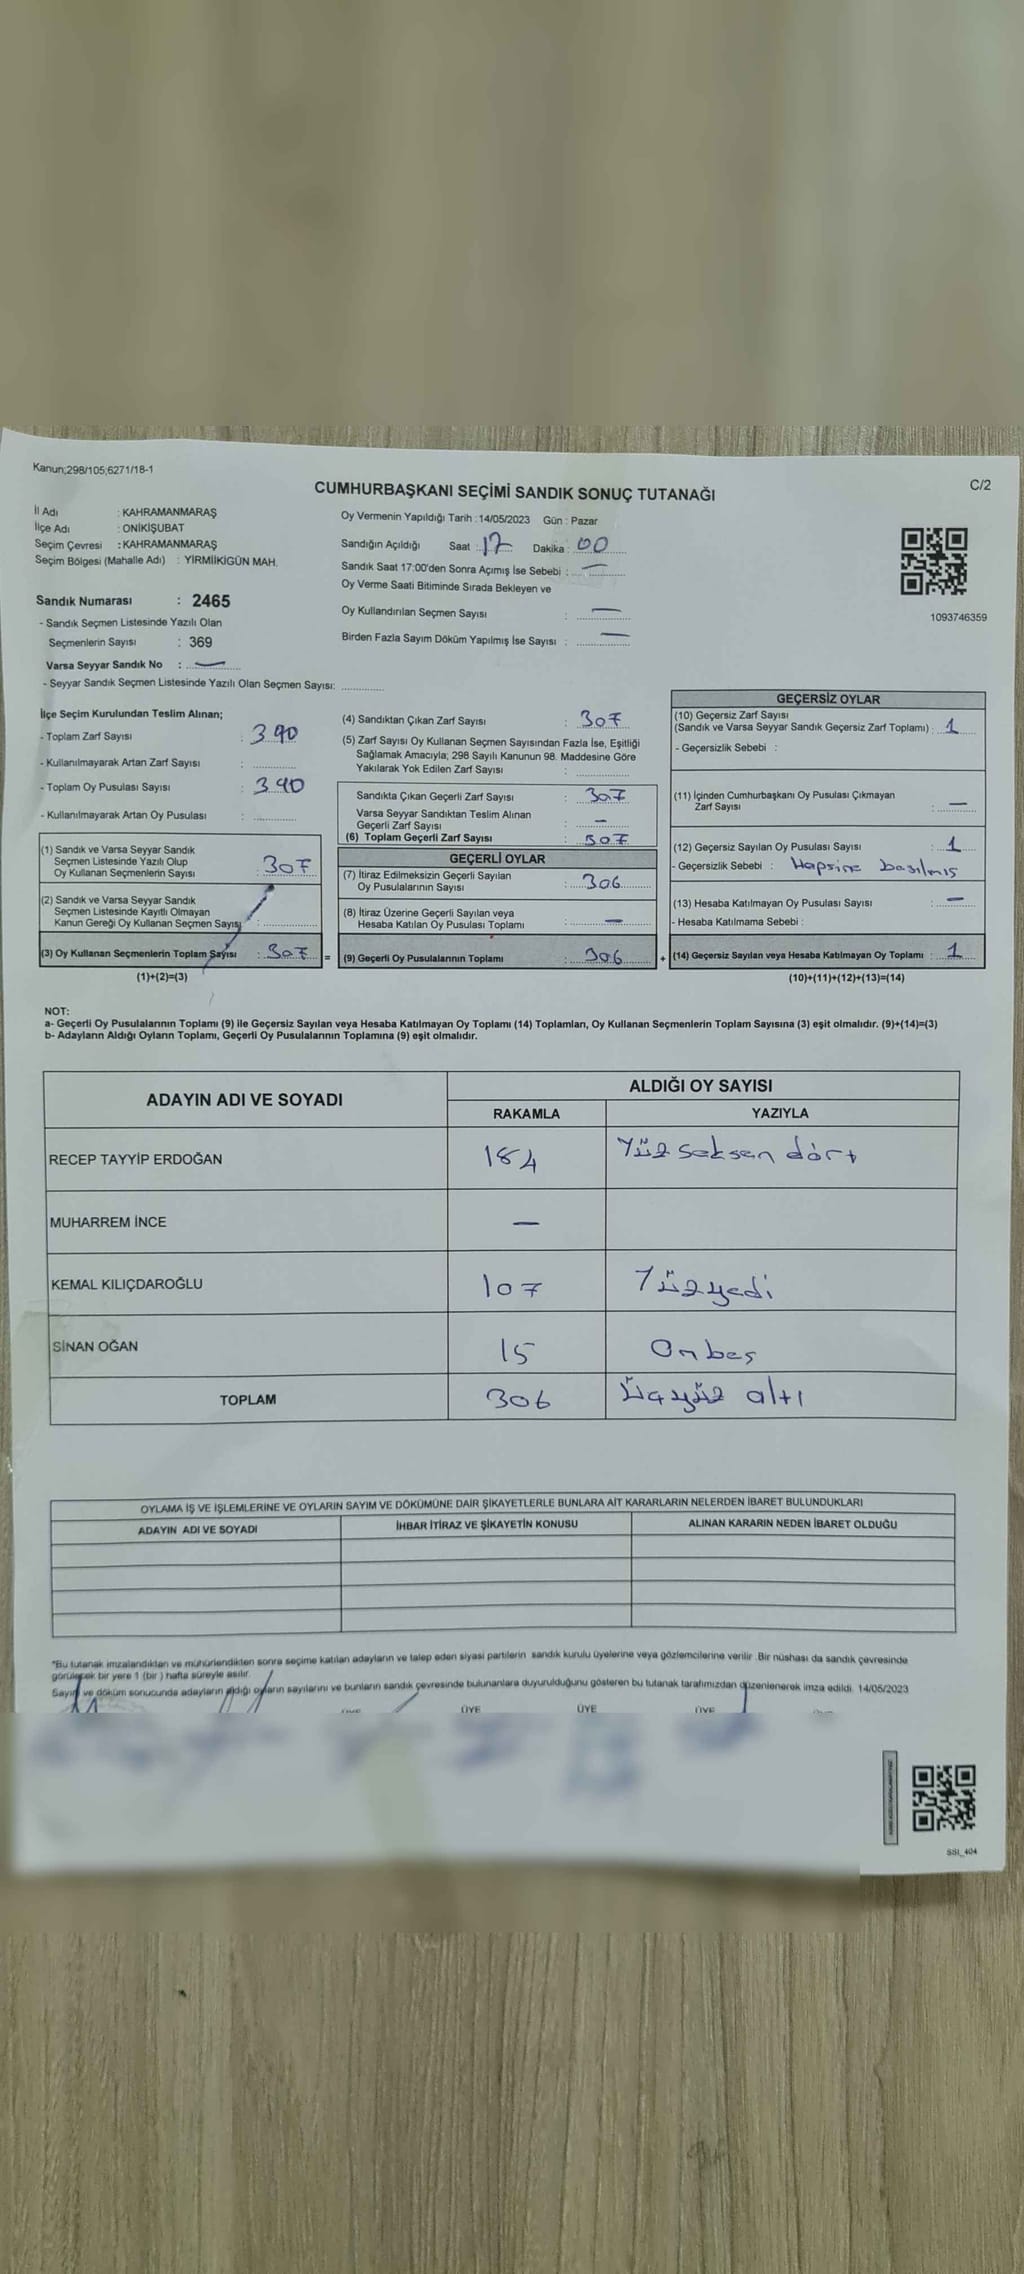 Kanun;298/105;6271/18-1
C/2
CUMHURBAŞKANI SEÇİMİ SANDIK SONUÇ TUTANAĞI
İl Adı : KAHRAMANMARAŞ
İlçe Adı : ONİKİŞUBAT
Seçim Çevresi : KAHRAMANMARAŞ
Seçim Bölgesi (Mahalle Adı) : YİRMİİKİGÜN MAH.
Sandık Numarası : 2465
- Sandık Seçmen Listesinde Yazılı Olan
Seçmenlerin Sayısı : 369
Varsa Seyyar Sandık No : —
- Seyyar Sandık Seçmen Listesinde Yazılı Olan Seçmen Sayısı: ..............
Oy Vermenin Yapıldığı Tarih : 14/05/2023 Gün : Pazar
Sandığın Açıldığı Saat : 17 Dakika : 00
Sandık Saat 17:00'den Sonra Açımış İse Sebebi : —
Oy Verme Saati Bitiminde Sırada Bekleyen ve
Oy Kullandırılan Seçmen Sayısı : —
Birden Fazla Sayım Döküm Yapılmış İse Sayısı : —
1093746359
İlçe Seçim Kurulundan Teslim Alınan;
- Toplam Zarf Sayısı : 390
- Kullanılmayarak Artan Zarf Sayısı : ..............
- Toplam Oy Pusulası Sayısı : 390
- Kullanılmayarak Artan Oy Pusulası : ..............
(1) Sandık ve Varsa Seyyar Sandık
Seçmen Listesinde Yazılı Olup
Oy Kullanan Seçmenlerin Sayısı : 307
(2) Sandık ve Varsa Seyyar Sandık
Seçmen Listesinde Kayıtlı Olmayan
Kanun Gereği Oy Kullanan Seçmen Sayısı : ..............
(3) Oy Kullanan Seçmenlerin Toplam Sayısı : 307 =
(1)+(2)=(3)
(4) Sandıktan Çıkan Zarf Sayısı : 307
(5) Zarf Sayısı Oy Kullanan Seçmen Sayısından Fazla İse, Eşitliği
Sağlamak Amacıyla; 298 Sayılı Kanunun 98. Maddesine Göre
Yakılarak Yok Edilen Zarf Sayısı : ..............
Sandıkta Çıkan Geçerli Zarf Sayısı : 307
Varsa Seyyar Sandıktan Teslim Alınan
Geçerli Zarf Sayısı : —
(6) Toplam Geçerli Zarf Sayısı : 307
GEÇERLİ OYLAR
(7) İtiraz Edilmeksizin Geçerli Sayılan
Oy Pusulalarının Sayısı : 306
(8) İtiraz Üzerine Geçerli Sayılan veya
Hesaba Katılan Oy Pusulası Toplamı : —
(9) Geçerli Oy Pusulalarının Toplamı : 306 +
GEÇERSİZ OYLAR
(10) Geçersiz Zarf Sayısı
(Sandık ve Varsa Seyyar Sandık Geçersiz Zarf Toplamı) : 1
- Geçersizlik Sebebi :
(11) İçinden Cumhurbaşkanı Oy Pusulası Çıkmayan
Zarf Sayısı : —
(12) Geçersiz Sayılan Oy Pusulası Sayısı : 1
- Geçersizlik Sebebi : Hapsine basılmış
(13) Hesaba Katılmayan Oy Pusulası Sayısı : —
- Hesaba Katılmama Sebebi :
(14) Geçersiz Sayılan veya Hesaba Katılmayan Oy Toplamı : 1
(10)+(11)+(12)+(13)=(14)
NOT:
a- Geçerli Oy Pusulalarının Toplamı (9) ile Geçersiz Sayılan veya Hesaba Katılmayan Oy Toplamı (14) Toplamları, Oy Kullanan Seçmenlerin Toplam Sayısına (3) eşit olmalıdır. (9)+(14)=(3)
b- Adayların Aldığı Oyların Toplamı, Geçerli Oy Pusulalarının Toplamına (9) eşit olmalıdır.
ADAYIN ADI VE SOYADI ALDIĞI OY SAYISI
RAKAMLA YAZIYLA
RECEP TAYYİP ERDOĞAN 184 Yüz seksen dört
MUHARREM İNCE —
KEMAL KILIÇDAROĞLU 107 Yüzyedi
SİNAN OĞAN 15 Onbeş
TOPLAM 306 Üçyüz altı
OYLAMA İŞ VE İŞLEMLERİNE VE OYLARIN SAYIM VE DÖKÜMÜNE DAİR ŞİKAYETLERLE BUNLARA AİT KARARLARIN NELERDEN İBARET BULUNDUKLARI
ADAYIN ADI VE SOYADI İHBAR İTİRAZ VE ŞİKAYETİN KONUSU ALINAN KARARIN NEDEN İBARET OLDUĞU
*Bu tutanak imzalandıktan ve mühürlendikten sonra seçime katılan adayların ve talep eden siyasi partilerin sandık kurulu üyelerine veya gözlemcilerine verilir. Bir nüshası da sandık çevresinde
görülecek bir yere 1 (bir ) hafta süreyle asılır.
Sayım ve döküm sonucunda adayların aldığı oyların sayılarını ve bunların sandık çevresinde bulunanlara duyurulduğunu gösteren bu tutanak tarafımızdan düzenlenerek imza edildi. 14/05/2023
ÜYE ÜYE ÜYE
SSI_404